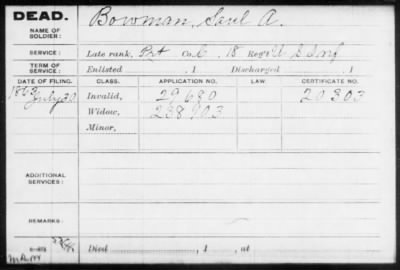 DEAD.
NAME OF SOLDIER: Bowman, Saul A.
SERVICE: Late rank, Prt Co. C, 18 Reg't U. S. Inf
TERM OF SERVICE: Enlisted , 1 Discharged , 1
DATE OF FILING. CLASS. APPLICATION NO. LAW. CERTIFICATE NO.
1863 July 30 Invalid, 29680 20303
Widow, 238903
Minor,
ADDITIONAL SERVICES:
REMARKS:
Died , 1 , at